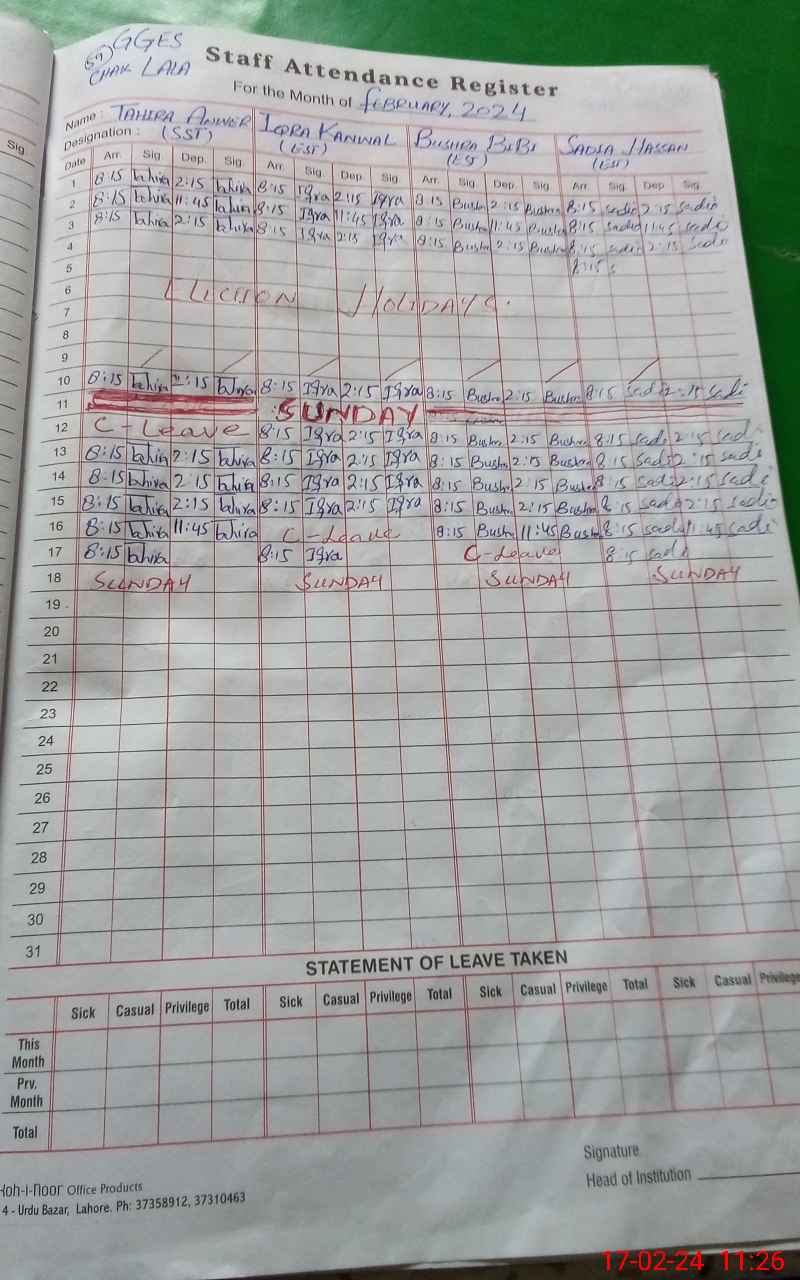 GGES
CHAK LALA
Staff Attendance Register
For the Month of FEBRUARY, 2024
Sig
Name : TAHIRA ANWER IQRA KANWAL BUSHRA BIBI SADIA HASSAN
Designation : (SST) (EST) (EST) (EST)
Date Arr. Sig. Dep. Sig. Arr. Sig. Dep. Sig. Arr. Sig. Dep. Sig. Arr. Sig. Dep. Sig.
1 8:15 Tahira 2:15 Tahira 8:15 Iqra 2:15 Iqra 8:15 Bushra 2:15 Bushra 8:15 Sadia 2:15 Sadia
2 8:15 Tahira 11:45 Tahira 8:15 Iqra 11:45 Iqra 8:15 Bushra 11:45 Bushra 8:15 Sadia 11:45 Sadia
3 8:15 Tahira 2:15 Tahira 8:15 Iqra 2:15 Iqra 8:15 Bushra 2:15 Bushra 8:15 Sadia 2:15 Sadia
4 8:15 S
5
6 ELECTION HOLIDAYS.
7
8
9
10 8:15 Tahira 2:15 Tahira 8:15 Iqra 2:15 Iqra 8:15 Bushra 2:15 Bushra 8:15 Sadi 2:15 Sadi
11 SUNDAY
12 C-Leave 8:15 Iqra 2:15 Iqra 8:15 Bushra 2:15 Bushra 8:15 Sadi 2:15 Sadi
13 8:15 Tahira 2:15 Tahira 8:15 Iqra 2:15 Iqra 8:15 Bushra 2:15 Bushra 8:15 Sadi 2:15 Sadi
14 8:15 Tahira 2:15 Tahira 8:15 Iqra 2:15 Iqra 8:15 Bushra 2:15 Bushra 8:15 Sadi 2:15 Sadi
15 8:15 Tahira 2:15 Tahira 8:15 Iqra 2:15 Iqra 8:15 Bushra 2:15 Bushra 8:15 Sadi 2:15 Sadia
16 8:15 Tahira 11:45 Tahira C-Leave 8:15 Bushra 11:45 Bushra 8:15 Sadi 11:45 Sadi
17 8:15 Tahira 8:15 Iqra C-Leave 8:15 Sadi
18 SUNDAY SUNDAY SUNDAY SUNDAY
19
20
21
22
23
24
25
26
27
28
29
30
31
STATEMENT OF LEAVE TAKEN
Sick Casual Privilege Total Sick Casual Privilege Total Sick Casual Privilege Total Sick Casual Privilege
This Month
Prv. Month
Total
Signature
Head of Institution
Koh-I-Noor Office Products
4 - Urdu Bazar, Lahore. Ph: 37358912, 37310463
17-02-24 11:26